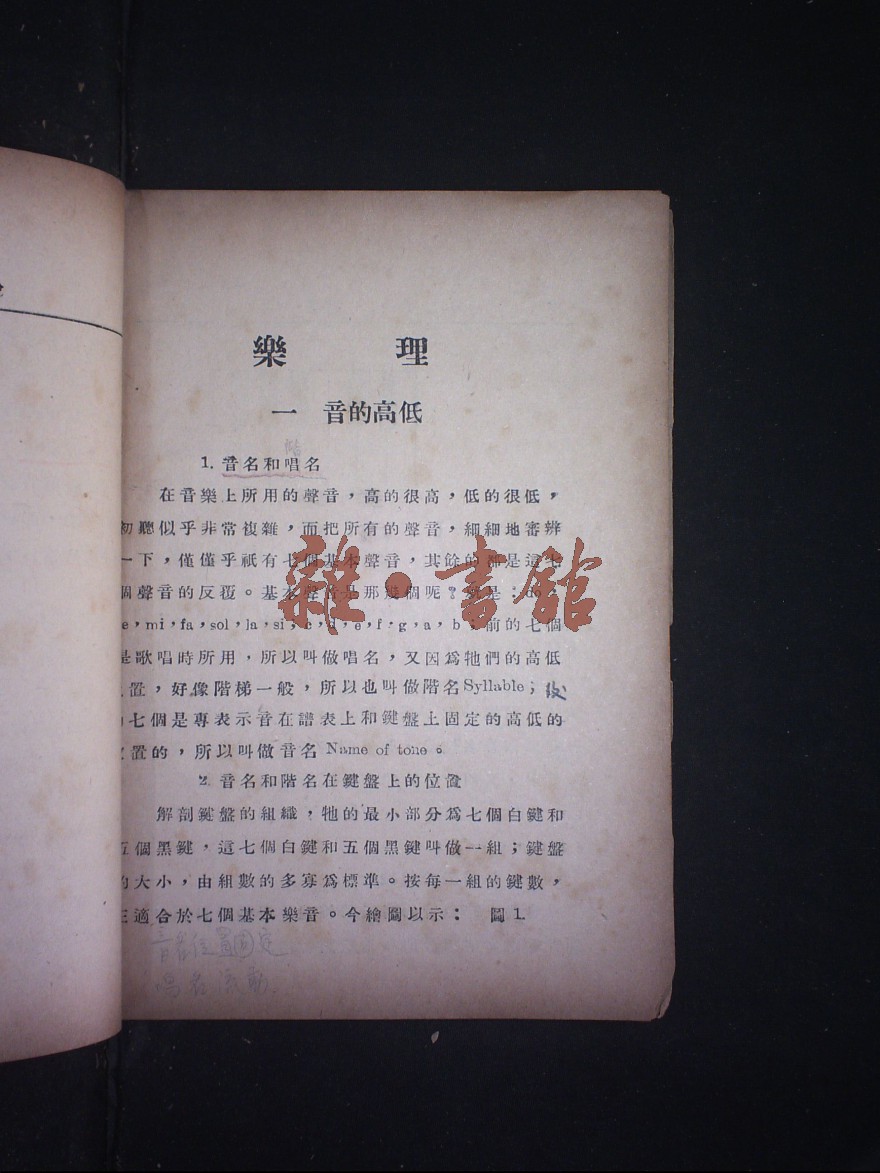 樂 理
一 音的高低
階
1. 音名和唱名
在音樂上所用的聲音，高的很高，低的很低，
初聽似乎非常複雜，而把所有的聲音，細細地審辨
一下，僅僅乎祇有七個基本聲音，其餘的都是這七
個聲音的反覆。基本聲音是那幾個呢？就是：do
e，mi，fa，sol，la，si；c，d，e，f，g，a，b；前的七個
是歌唱時所用，所以叫做唱名，又因爲牠們的高低
置，好像階梯一般，所以也叫做階名Syllable；後
七個是專表示音在譜表上和鍵盤上固定的高低的
置的，所以叫做音名 Name of tone。
2. 音名和階名在鍵盤上的位置
解剖鍵盤的組織，牠的最小部分爲七個白鍵和
五個黑鍵，這七個白鍵和五個黑鍵叫做一組；鍵盤
的大小，由組數的多寡爲標準。按每一組的鍵數，
正適合於七個基本樂音。今繪圖以示： 圖1.
音名位置固定
唱名流動
雜·書館